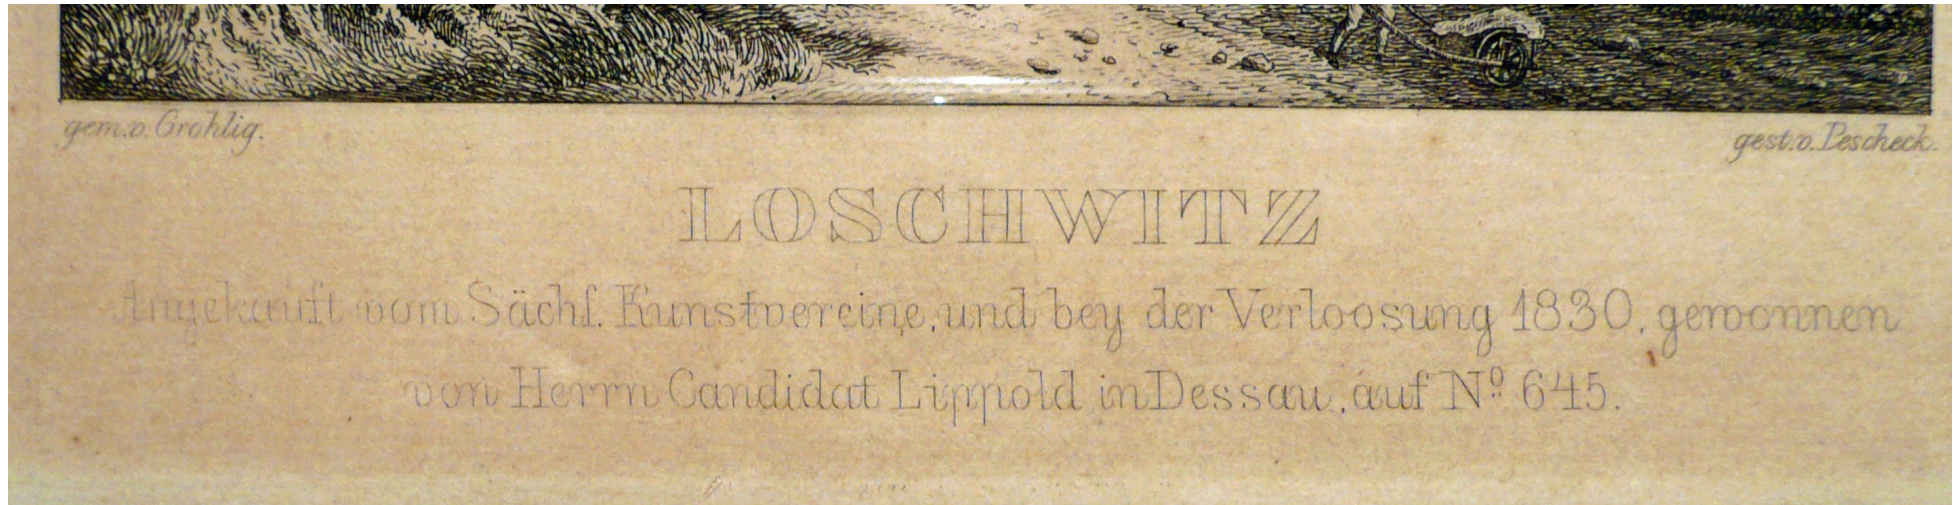 gem. v. Grohlig.
gest. v. Pescheck.
LOSCHWITZ
Angekauft vom Sächs. Kunstvereine, und bey der Verloosung 1830, gewonnen
von Herrn Candidat Lippold in Dessau, auf Nº 645.